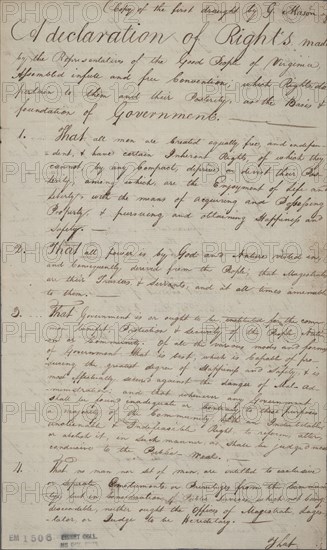 Copy of the first draught by G. Mason
A declaration of Rights, made
by the Representatives of the Good People of Virginia,
Assembled in full and free Convention, which Rights do
pertain to them and their Posterity, as the Basis &
foundation of Government.
1. That all men are Created equally free, and indepen
dent, & have certain Inherent Rights, of which they
cannot by any Compact, deprive or divest their Pos
terity, among which are the Enjoyment of Life and
liberty, with the means of acquiring and Possessing
Property, & pursueing and obtaining Happiness and
Safety.
2. That all power is by God and Nature vested in,
and Consequently derived from the People; that Magistrates
are their Trustees & servants, and at all times amenable
to them.
3. That Government is or ought to be instituted for the common
Protection & security of the People, Nation
or Community. Of all the various modes and forms
of Government that is best, which is Capable of pro
ducing the greatest degree of Happiness and Safety, & is
most effectually secured against the danger of Mal-Ad
ministration; and that whenever any Government
shall be found inadequate or contrary to these purposes
a majority of the Community hath an indubitable
unalienable & Indefeasible Right to reform, alter,
or abolish it, in such manner as shall be judged most
conducive to the Publick Weal.
4. That no man nor set of men are entitled to exclusive
or seperate Emoluments or Priviledges from the Community
but in Consideration of Public Services; which not being
descendible, neither ought the Offices of Magistrate, Legis
lator, or Judge to be Hereditary.
EM 1506
EMMET COLL.
PHOTO12